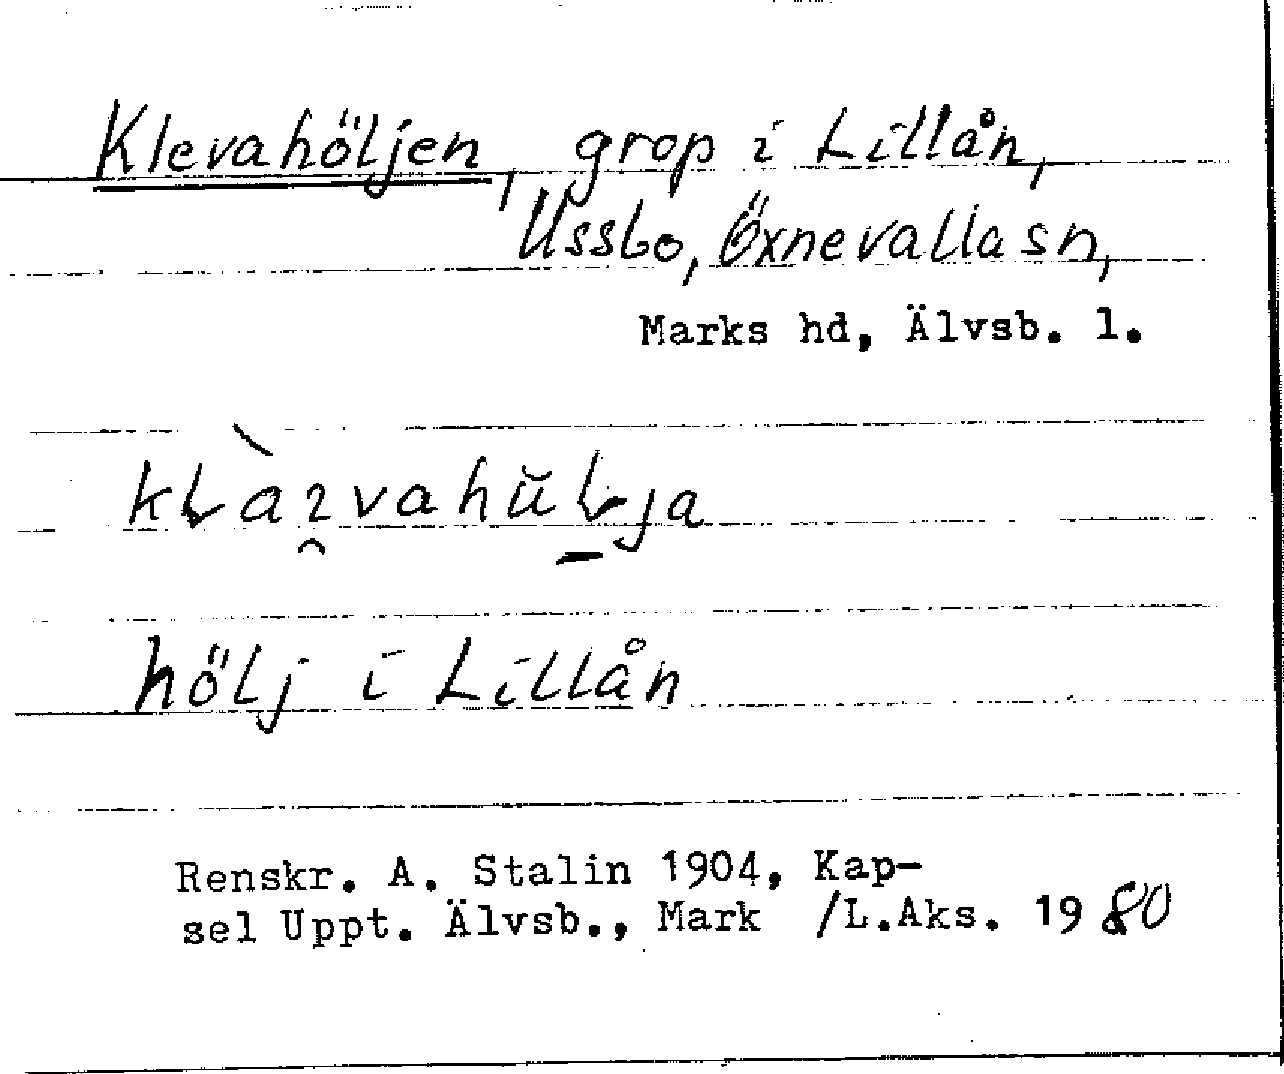 Klevahöljen, grop i Lillån,
Ussbo, Öxnevalla sn,
Marks hd, Älvsb. l.
hölj i Lillån
Renskr. A. Stalin 1904, Kap-
sel Uppt. Älvsb., Mark /L.Aks. 1980